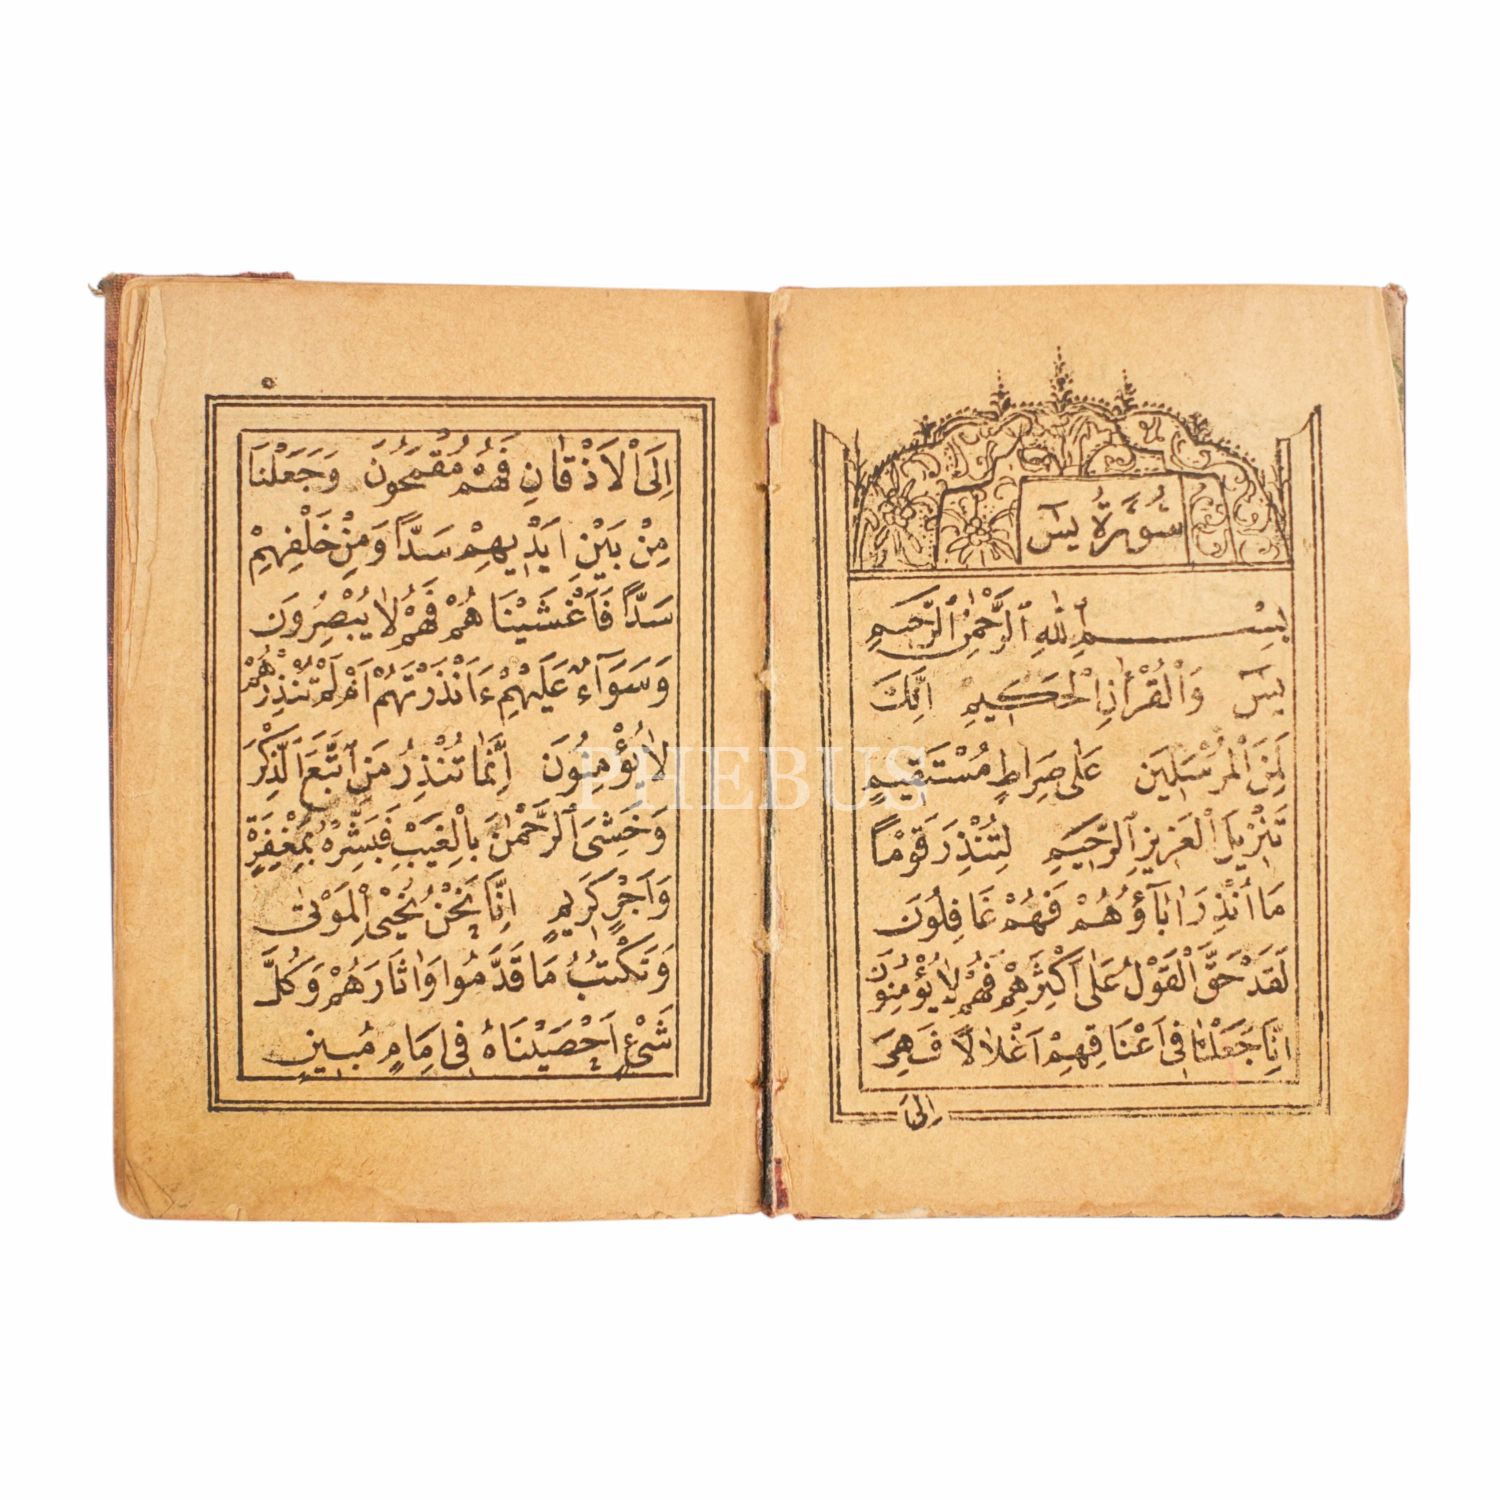 سُورَةُ يسٓ
بِسْمِ ٱللّٰهِ ٱلرَّحْمٰنِ ٱلرَّحِيمِ
يسٓ وَٱلْقُرْاٰنِ ٱلْحَكِيمِ اِنَّكَ
لَمِنَ ٱلْمُرْسَلِينَ عَلٰى صِرَاطٍ مُسْتَقِيمٍ
تَنْزِيلَ ٱلْعَزِيزِ ٱلرَّحِيمِ لِتُنْذِرَ قَوْمًا
مَا اُنْذِرَ اٰبَآؤُهُمْ فَهُمْ غَافِلُونَ
لَقَدْ حَقَّ ٱلْقَوْلُ عَلٰى اَكْثَرِهِمْ فَهُمْ لَا يُؤْمِنُونَ
اِنَّا جَعَلْنَا فِى اَعْنَاقِهِمْ اَغْلَالًا فَهِىَ
اِلَى
٥
اِلَى ٱلْاَذْقَانِ فَهُمْ مُقْمَحُونَ وَجَعَلْنَا
مِنْ بَيْنِ اَيْدِيهِمْ سَدًّا وَمِنْ خَلْفِهِمْ
سَدًّا فَاَغْشَيْنَاهُمْ فَهُمْ لَا يُبْصِرُونَ
وَسَوَآءٌ عَلَيْهِمْ ءَاَنْذَرْتَهُمْ اَمْ لَمْ تُنْذِرْهُمْ
لَا يُؤْمِنُونَ اِنَّمَا تُنْذِرُ مَنِ ٱتَّبَعَ ٱلذِّكْرَ
وَخَشِىَ ٱلرَّحْمٰنَ بِالْغَيْبِ فَبَشِّرْهُ بِمَغْفِرَةٍ
وَاَجْرٍ كَرِيمٍ اِنَّا نَحْنُ نُحْيِى ٱلْمَوْتٰى
وَنَكْتُبُ مَا قَدَّمُوا وَاٰثَارَهُمْ وَكُلَّ
شَىْءٍ اَحْصَيْنَاهُ فِى اِمَامٍ مُبِينٍ
PHEBUS